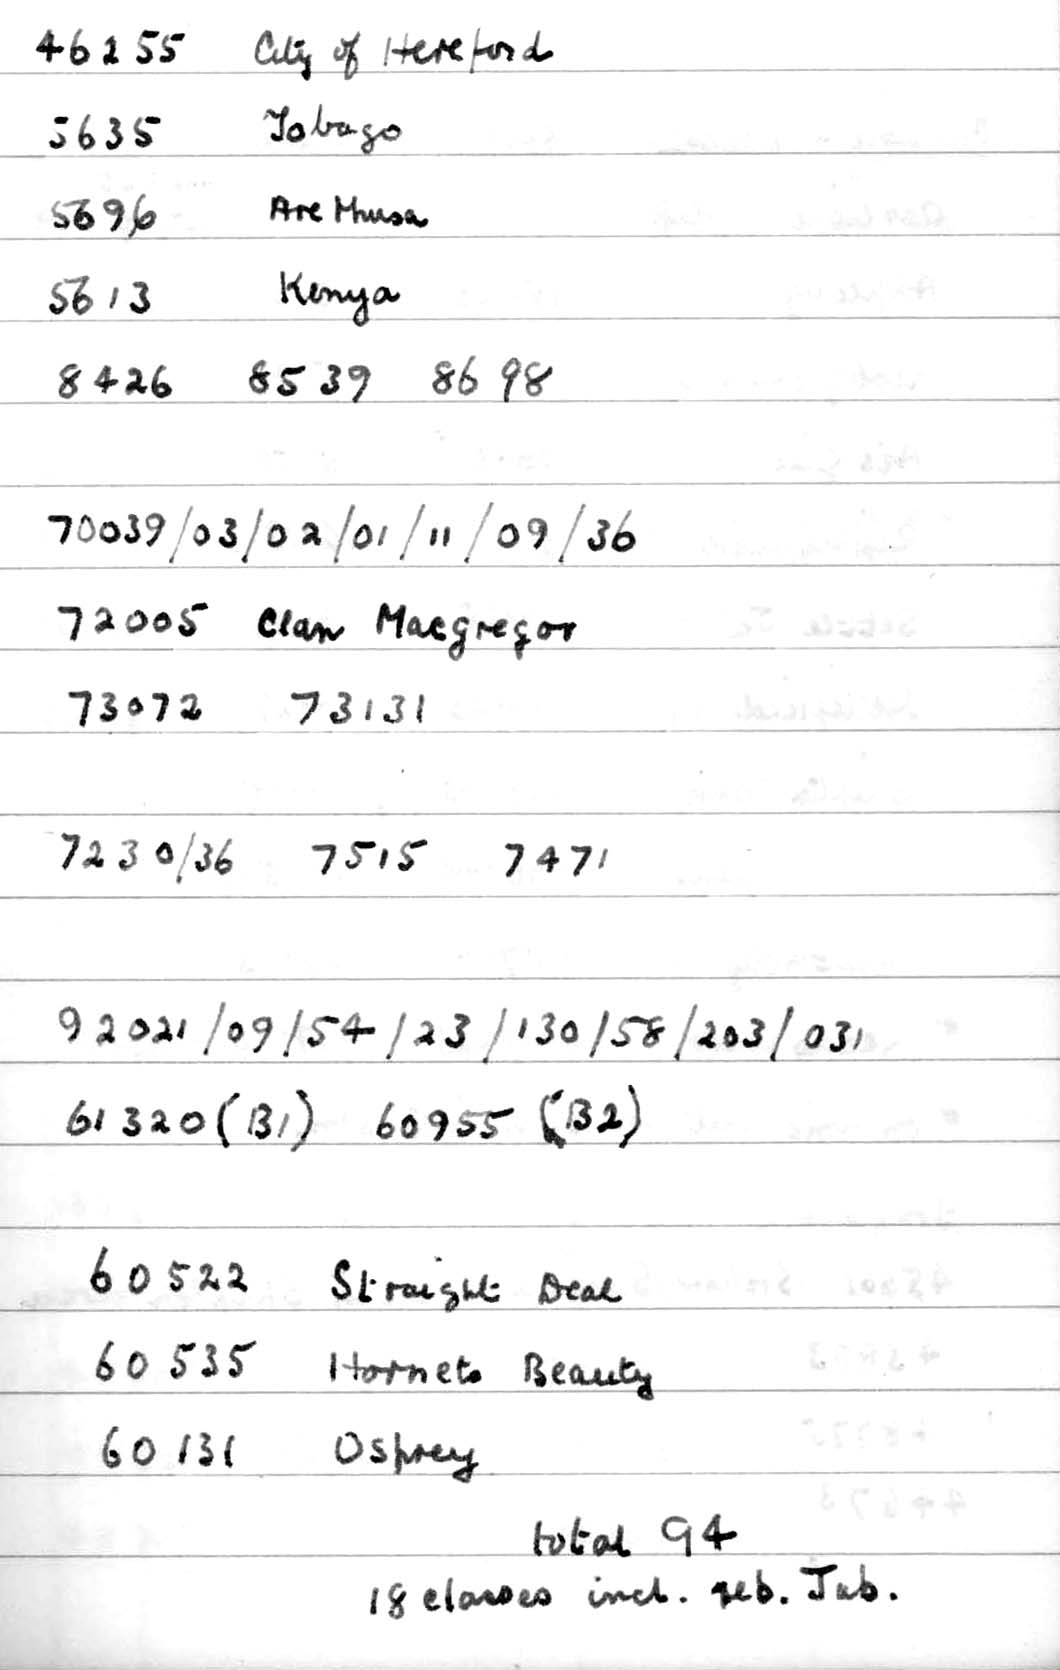 46255 City of Hereford
5635 Tobago
5696 Arethusa
5613 Kenya
8426 8539 8698
70039/03/02/01/11/09/36
72005 Clan Macgregor
73072 73131
7230/36 7515 7471
92021/09/54/23/130/58/203/031
61320(B1) 60955 (B2)
60522 Straight Deal
60535 Hornets Beauty
60131 Osprey
total 94
18 classes incl. reb. Jub.